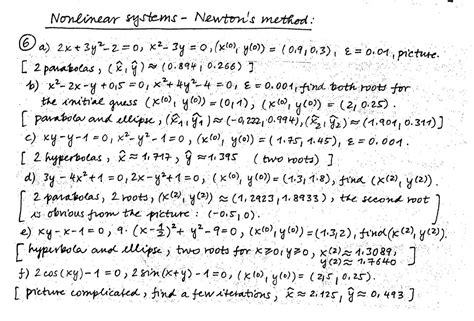 Nonlinear systems - Newton's method:
⑥ a) 2x + 3y² - 2 = 0, x² - 3y = 0, (x⁽⁰⁾, y⁽⁰⁾) = (0.9, 0.3), ε = 0.01, picture.
[ 2 parabolas, (x̂, ŷ) ≈ (0.894, 0.266) ]
b) x² - 2x - y + 0,5 = 0, x² + 4y² - 4 = 0, ε = 0.001, find both roots for
the initial guess (x⁽⁰⁾, y⁽⁰⁾) = (0,1), (x⁽⁰⁾, y⁽⁰⁾) = (2, 0.25).
[ parabola and ellipse, (x̂₁, ŷ₁) ≈ (-0,222, 0.994), (x̂₂, ŷ₂) ≈ (1.901, 0.311) ]
c) xy - y - 1 = 0, x² - y² - 1 = 0, (x⁽⁰⁾, y⁽⁰⁾) = (1.75, 1.45), ε = 0.001.
[ 2 hyperbolas, x̂ ≈ 1,717, ŷ ≈ 1.395 (two roots) ]
d) 3y - 4x² + 1 = 0, 2x - y² + 1 = 0, (x⁽⁰⁾, y⁽⁰⁾) = (1.3, 1.8), find (x⁽²⁾, y⁽²⁾).
[ 2 parabolas, 2 roots, (x⁽²⁾, y⁽²⁾) ≈ (1,2923, 1.8933), the second root
is obvious from the picture: (-0.5, 0). ]
e) xy - x - 1 = 0, 9·(x - ½)² + y² - 9 = 0, (x⁽⁰⁾, y⁽⁰⁾) = (1.3, 2), find (x⁽²⁾, y⁽²⁾).
[ hyperbola and ellipse, two roots for x ≥ 0, y ≥ 0, x⁽²⁾ ≈ 1.3089,
y⁽²⁾ ≈ 1.7640 ]
f) 2 cos(xy) - 1 = 0, 2 sin(x+y) - 1 = 0, (x⁽⁰⁾, y⁽⁰⁾) = (2,5, 0.25).
[ picture complicated, find a few iterations, x̂ ≈ 2.125, ŷ ≈ 0,493 ]